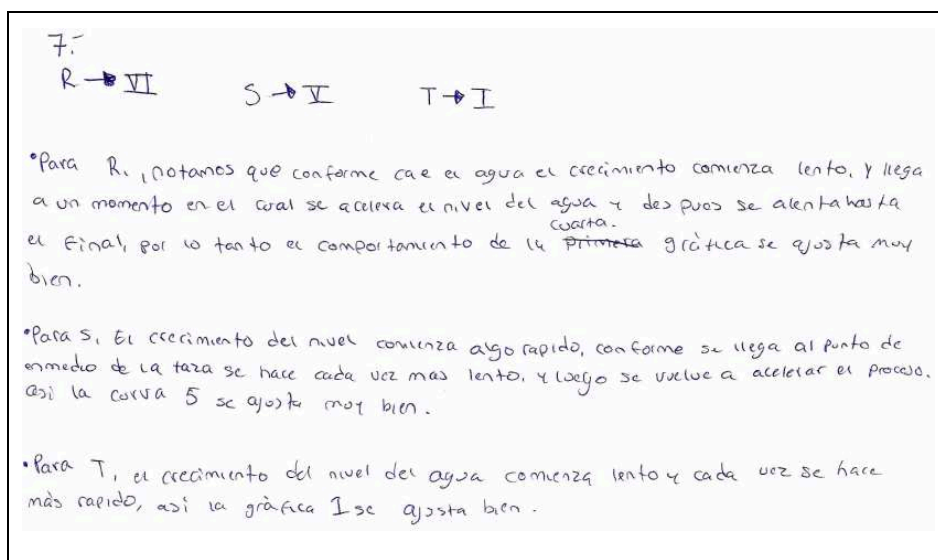 7.-
R → VI S → V T → I
•Para R., notamos que conforme cae el agua el crecimiento comienza lento, y llega
a un momento en el cual se acelera el nivel del agua y despues se alenta hasta
cuarta.
el final, por lo tanto el comportamiento de la primera gráfica se ajusta muy
bien.
•Para S, El crecimiento del nivel comienza algo rapido, conforme se llega al punto de
enmedio de la taza se hace cada vez mas lento, y luego se vuelve a acelerar el proceso.
asi la curva 5 se ajusta muy bien.
•Para T, el crecimiento del nivel del agua comienza lento y cada vez se hace
más rapido, asi la gráfica I se ajusta bien.